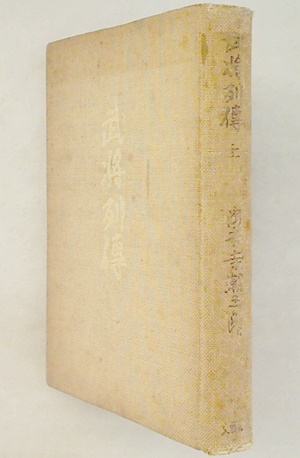 武将列傳
武将列傳 上
海音寺潮五郎